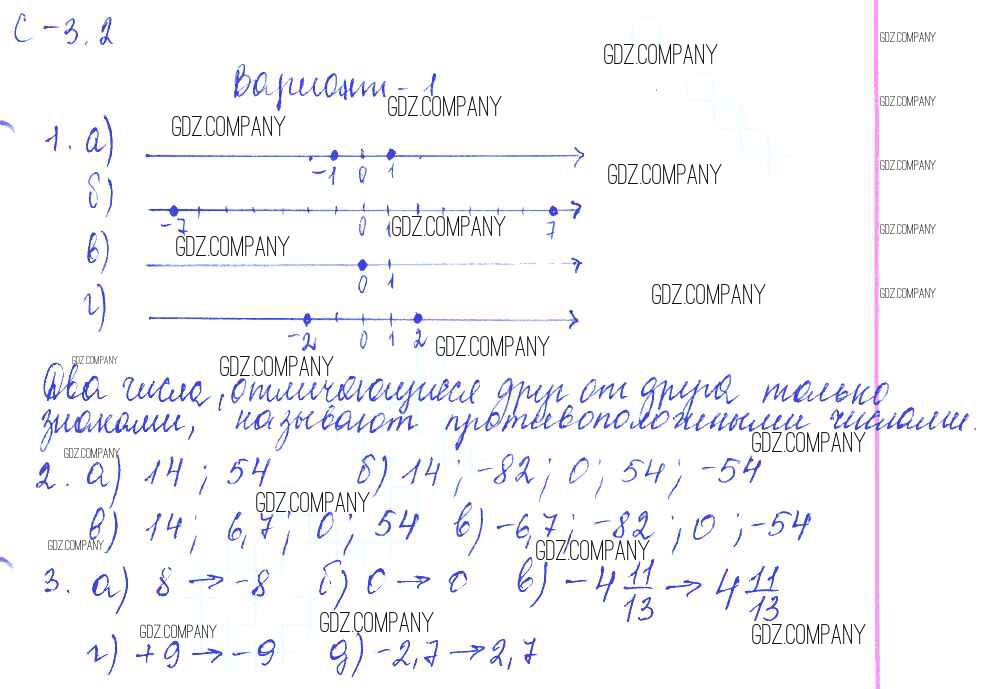 С-3.2
GDZ.COMPANY
GDZ.COMPANY
Вариант-1
GDZ.COMPANY
GDZ.COMPANY
GDZ.COMPANY
1. а)
-1 0 1
GDZ.COMPANY
GDZ.COMPANY
б)
-7 0 1 7
GDZ.COMPANY
GDZ.COMPANY
GDZ.COMPANY
в)
0 1
GDZ.COMPANY
GDZ.COMPANY
г)
-2 0 1 2
GDZ.COMPANY
GDZ.COMPANY
GDZ.COMPANY
Два числа, отличающиеся друг от друга только
знаками, называют противоположными числами.
GDZ.COMPANY
GDZ.COMPANY
2. а) 14; 54 б) 14; -82; 0; 54; -54
GDZ.COMPANY
в) 14; 6,7; 0; 54 в) -6,7; -82; 0; -54
GDZ.COMPANY
GDZ.COMPANY
3. а) 8 → -8 б) 0 → 0 в) -4 11/13 → 4 11/13
GDZ.COMPANY
GDZ.COMPANY
GDZ.COMPANY
г) +9 → -9 д) -2,7 → 2,7